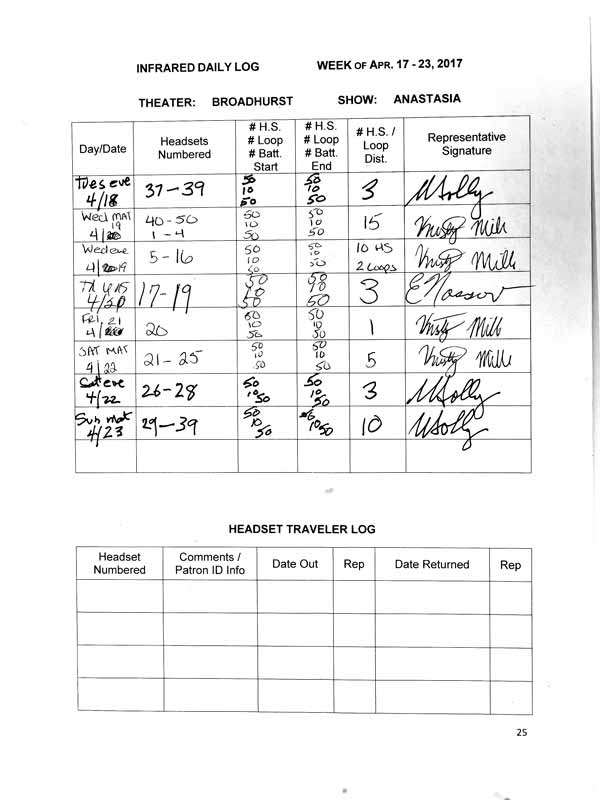 INFRARED DAILY LOG WEEK OF APR. 17 - 23, 2017
THEATER: BROADHURST SHOW: ANASTASIA
Day/Date
Headsets
Numbered
# H.S.
# Loop
# Batt.
Start
# H.S.
# Loop
# Batt.
End
# H.S. /
Loop
Dist.
Representative
Signature
Tues eve
4/18
37-39
50
10
50
50
10
50
3
Wed MAT
19
4/
40-50
1-4
50
10
50
50
10
50
15
Wed eve
4/ 19
5-16
50
10
50
50
10
50
10 HS
2 Loops
THURS
4/20
17-19
50
10
50
50
10
50
3
FRI, 21
4/
20
50
10
50
50
10
50
1
SAT MAT
4/22
21-25
50
10
50
50
10
50
5
Sat eve
4/22
26-28
50
10
50
50
10
50
3
Sun mat
4/23
29-39
50
10
50
10
50
10
HEADSET TRAVELER LOG
Headset
Numbered
Comments /
Patron ID Info
Date Out
Rep
Date Returned
Rep
25